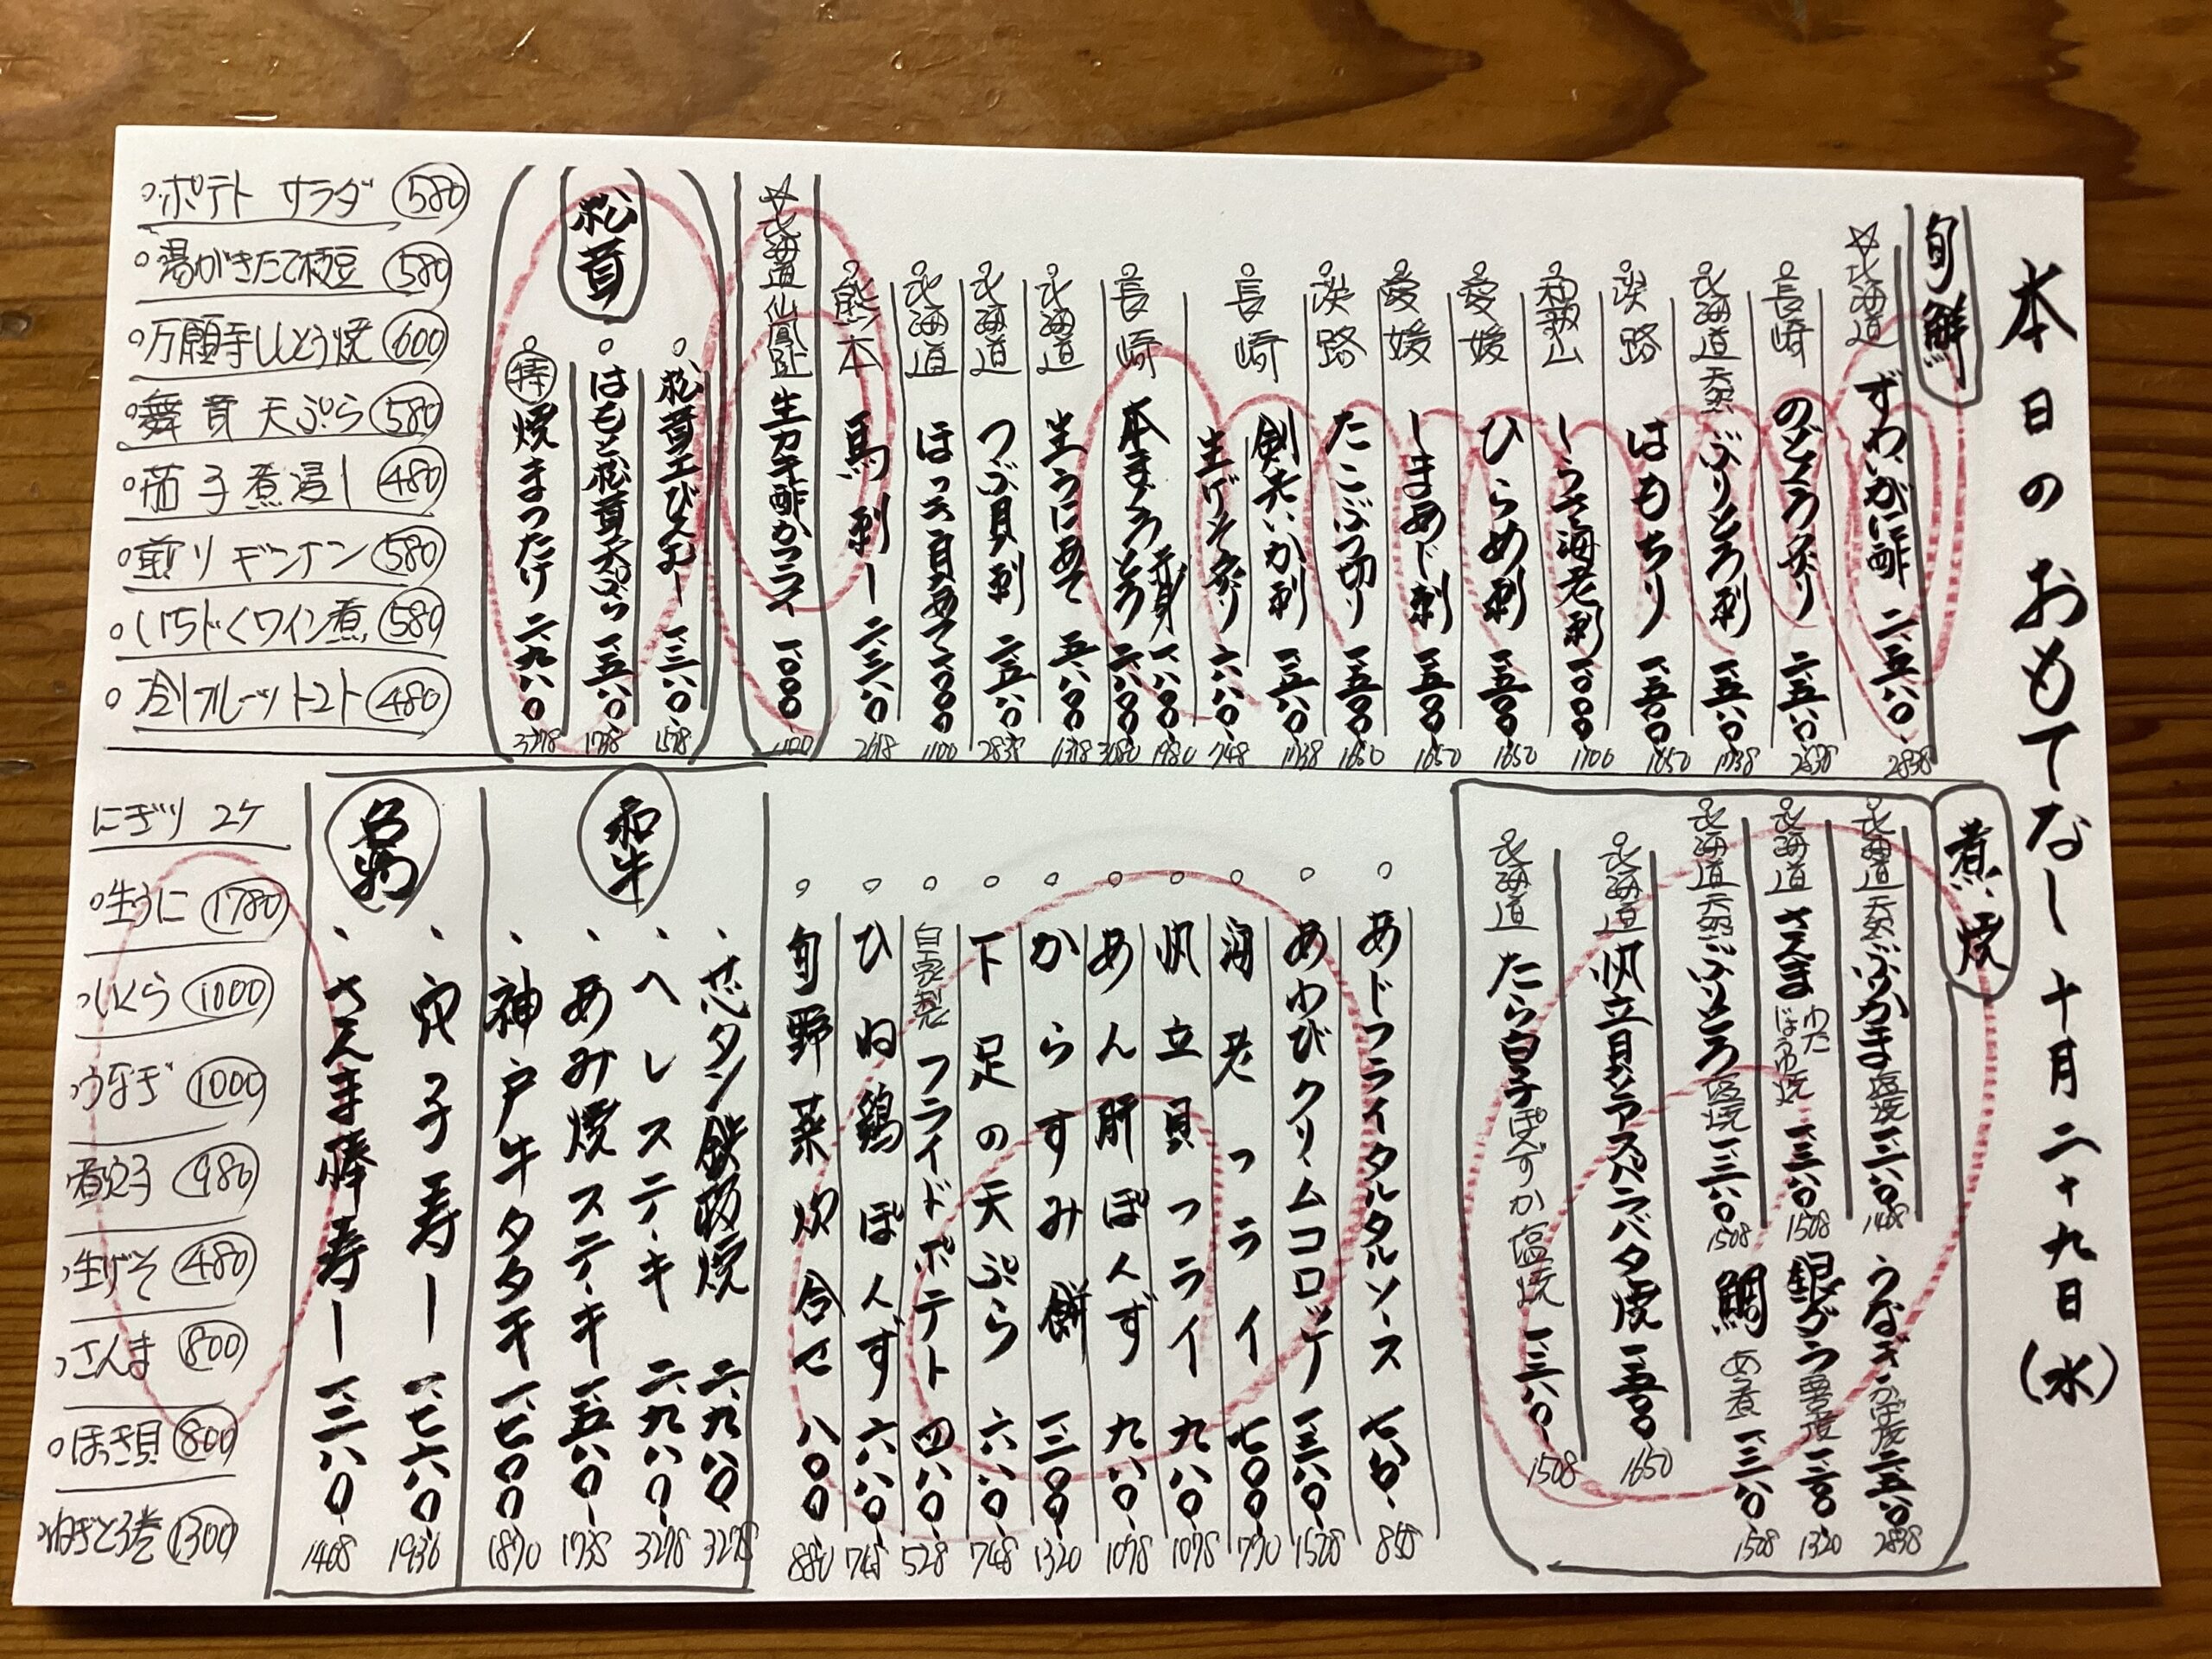 本日のおもてなし 十月二十九日(水)
旬鮮
☆北海道 ずわいがに酢 二、五八〇 2838
長崎 のどぐろ炙り 二、五八〇 2838
北海道 天然 ぶりとろ刺 一、五八〇 1738
淡路 はもちり 一、五〇〇 1650
和歌山 しらさ海老刺 一、〇〇〇 1100
愛媛 ひらめ刺 一、五〇〇 1650
愛媛 しまあじ刺 一、五〇〇 1650
淡路 たこぶつ切り 一、五〇〇 1650
長崎 剣先いか刺 一、五八〇 1738
生げそ炙り 六八〇 748
長崎 本まぐろ 赤身 一、八〇〇 1980
とろ 二、八〇〇 3080
北海道 生うにあて
北海道 つぶ貝刺 二、五八〇 2838
北海道 ほっき貝あて 一、〇〇〇 1100
熊本 馬刺し 二、三八〇 2618
☆北海道 仙鳳趾 生カキ酢かフライ 一、〇〇〇 1100
松茸
松茸土びんむし
はもと松茸天ぷら 一、五八〇 1738
焼まつたけ 二、九八〇 3278
ポテトサラダ 580
湯がきたて枝豆 580
万願寺ししとう焼 600
舞茸天ぷら 580
茄子煮浸し 480
煎りギンナン 580
いちじくワイン煮 580
冷しフルーツトマト 480
煮・焼
北海道 天然 ぶりかま 塩焼 一、二八〇 1408
うなぎ かば焼 二、五八〇 2838
北海道 さんま わたじょうゆ焼 一、三八〇 1508
銀ダラ 西京焼 一、二〇〇 1320
北海道 天然 ぶりとろ 塩焼 一、三八〇 1508
鯛 あら煮 一、三八〇 1508
北海道 帆立貝とアスパラバタ焼 一、五〇〇 1650
北海道 たら白子 ぽんずか塩焼 一、三八〇 1508
あじフライタルタルソース 七八〇 858
あわびクリームコロッケ
海老フライ 七〇〇 770
帆立貝フライ 九八〇 1078
あん肝ぽんず 九八〇 1078
からすみ餅 1320
下足の天ぷら 六八〇 748
自家製 フライドポテト 四八〇 528
ひね鶏ぽんず 六八〇 748
旬野菜炊合せ 八〇〇 880
和牛
芯タン鉄板焼 二、九八〇 3278
ヘレステーキ 二、九八〇 3278
あみ焼ステーキ 一、五八〇 1738
神戸牛タタキ 一、七〇〇 1870
名物
穴子寿し 一、七六〇 1936
さんま棒寿し 一、二八〇 1408
にぎり 2ケ
生うに 1780
いくら 1000
うなぎ 1000
煮穴子 980
生げそ 480
さんま 800
ほっき貝 800
ねぎとろ巻 1300